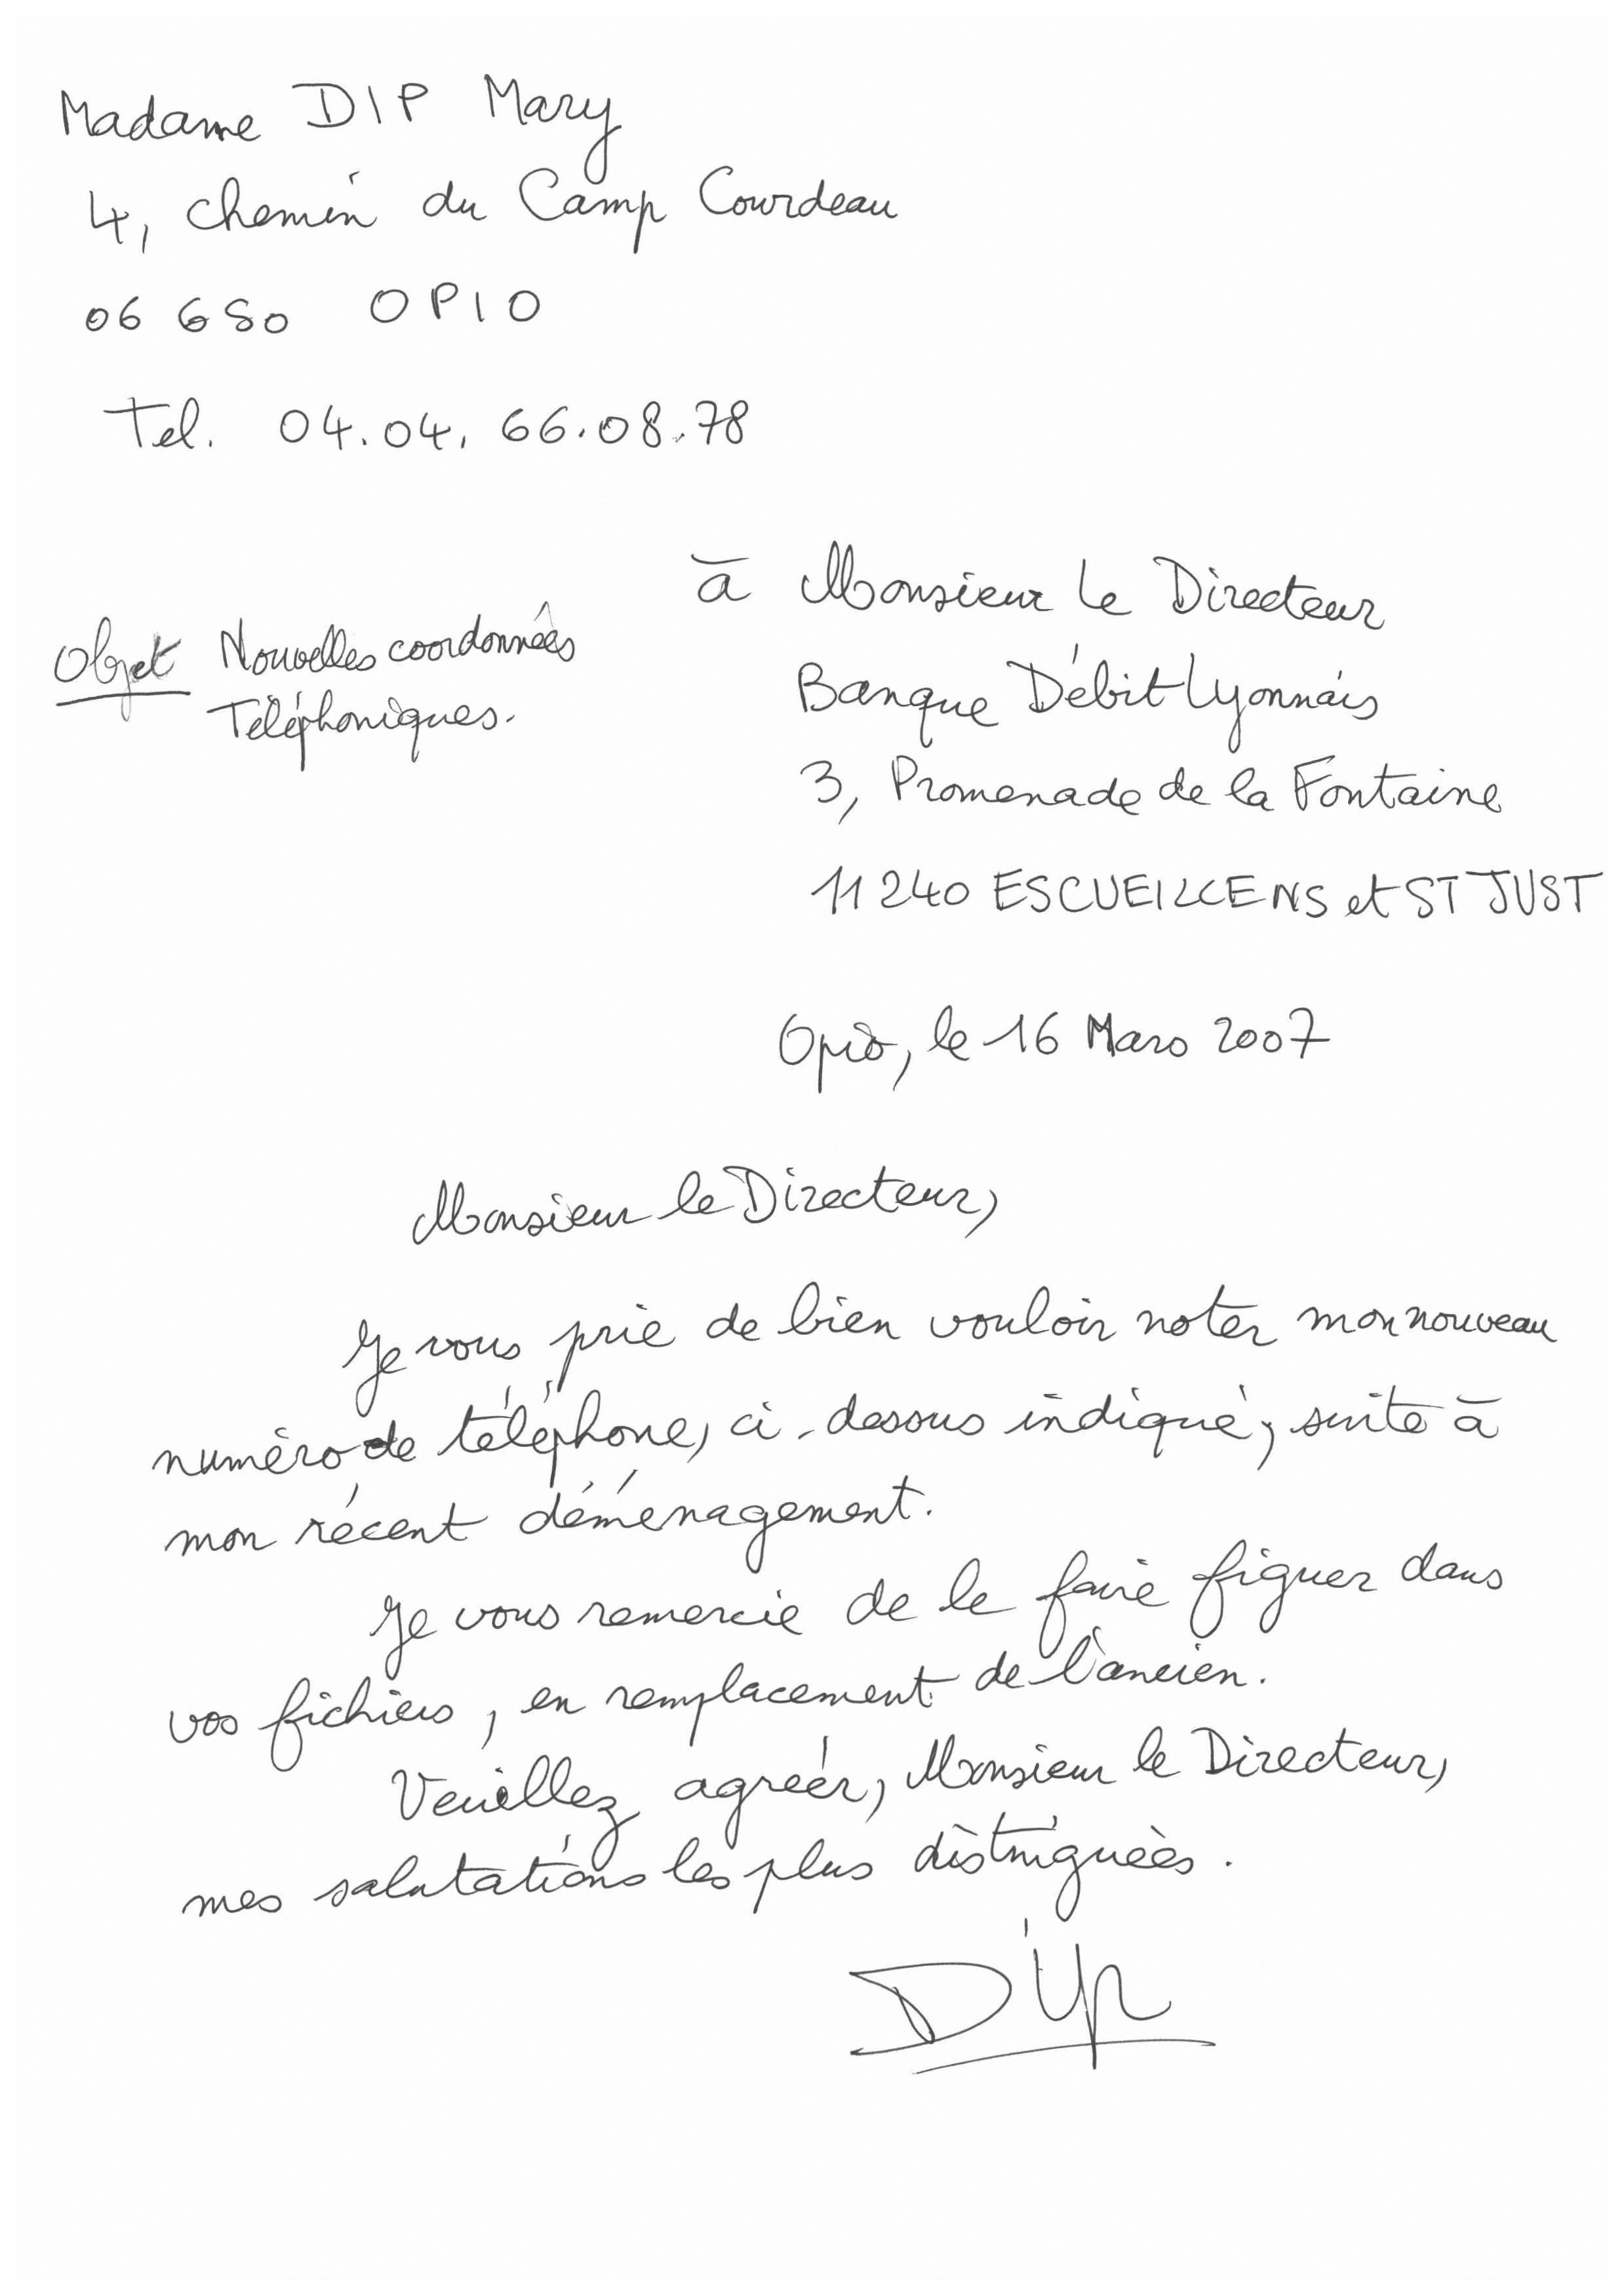 Madame DIP Mary
4, chemin du Camp Courdeau
06 650 OPIO
Tel. 04.04.66.08.78
à Monsieur Le Directeur
Objet Nouvelles coordonnées
Téléphoniques.
Banque Débit Lyonnais
3, Promenade de la Fontaine
11240 ESCUEILLENS et ST JUST
Opio, le 16 Mars 2007
Monsieur le Directeur,
Je vous prie de bien vouloir noter mon nouveau
numéro de téléphone, ci-dessous indiqué, suite à
mon récent déménagement.
Je vous remercie de le faire figurer dans
vos fichiers, en remplacement de l'ancien.
Veuillez agréer, Monsieur le Directeur,
mes salutations les plus distinguées.
Dip